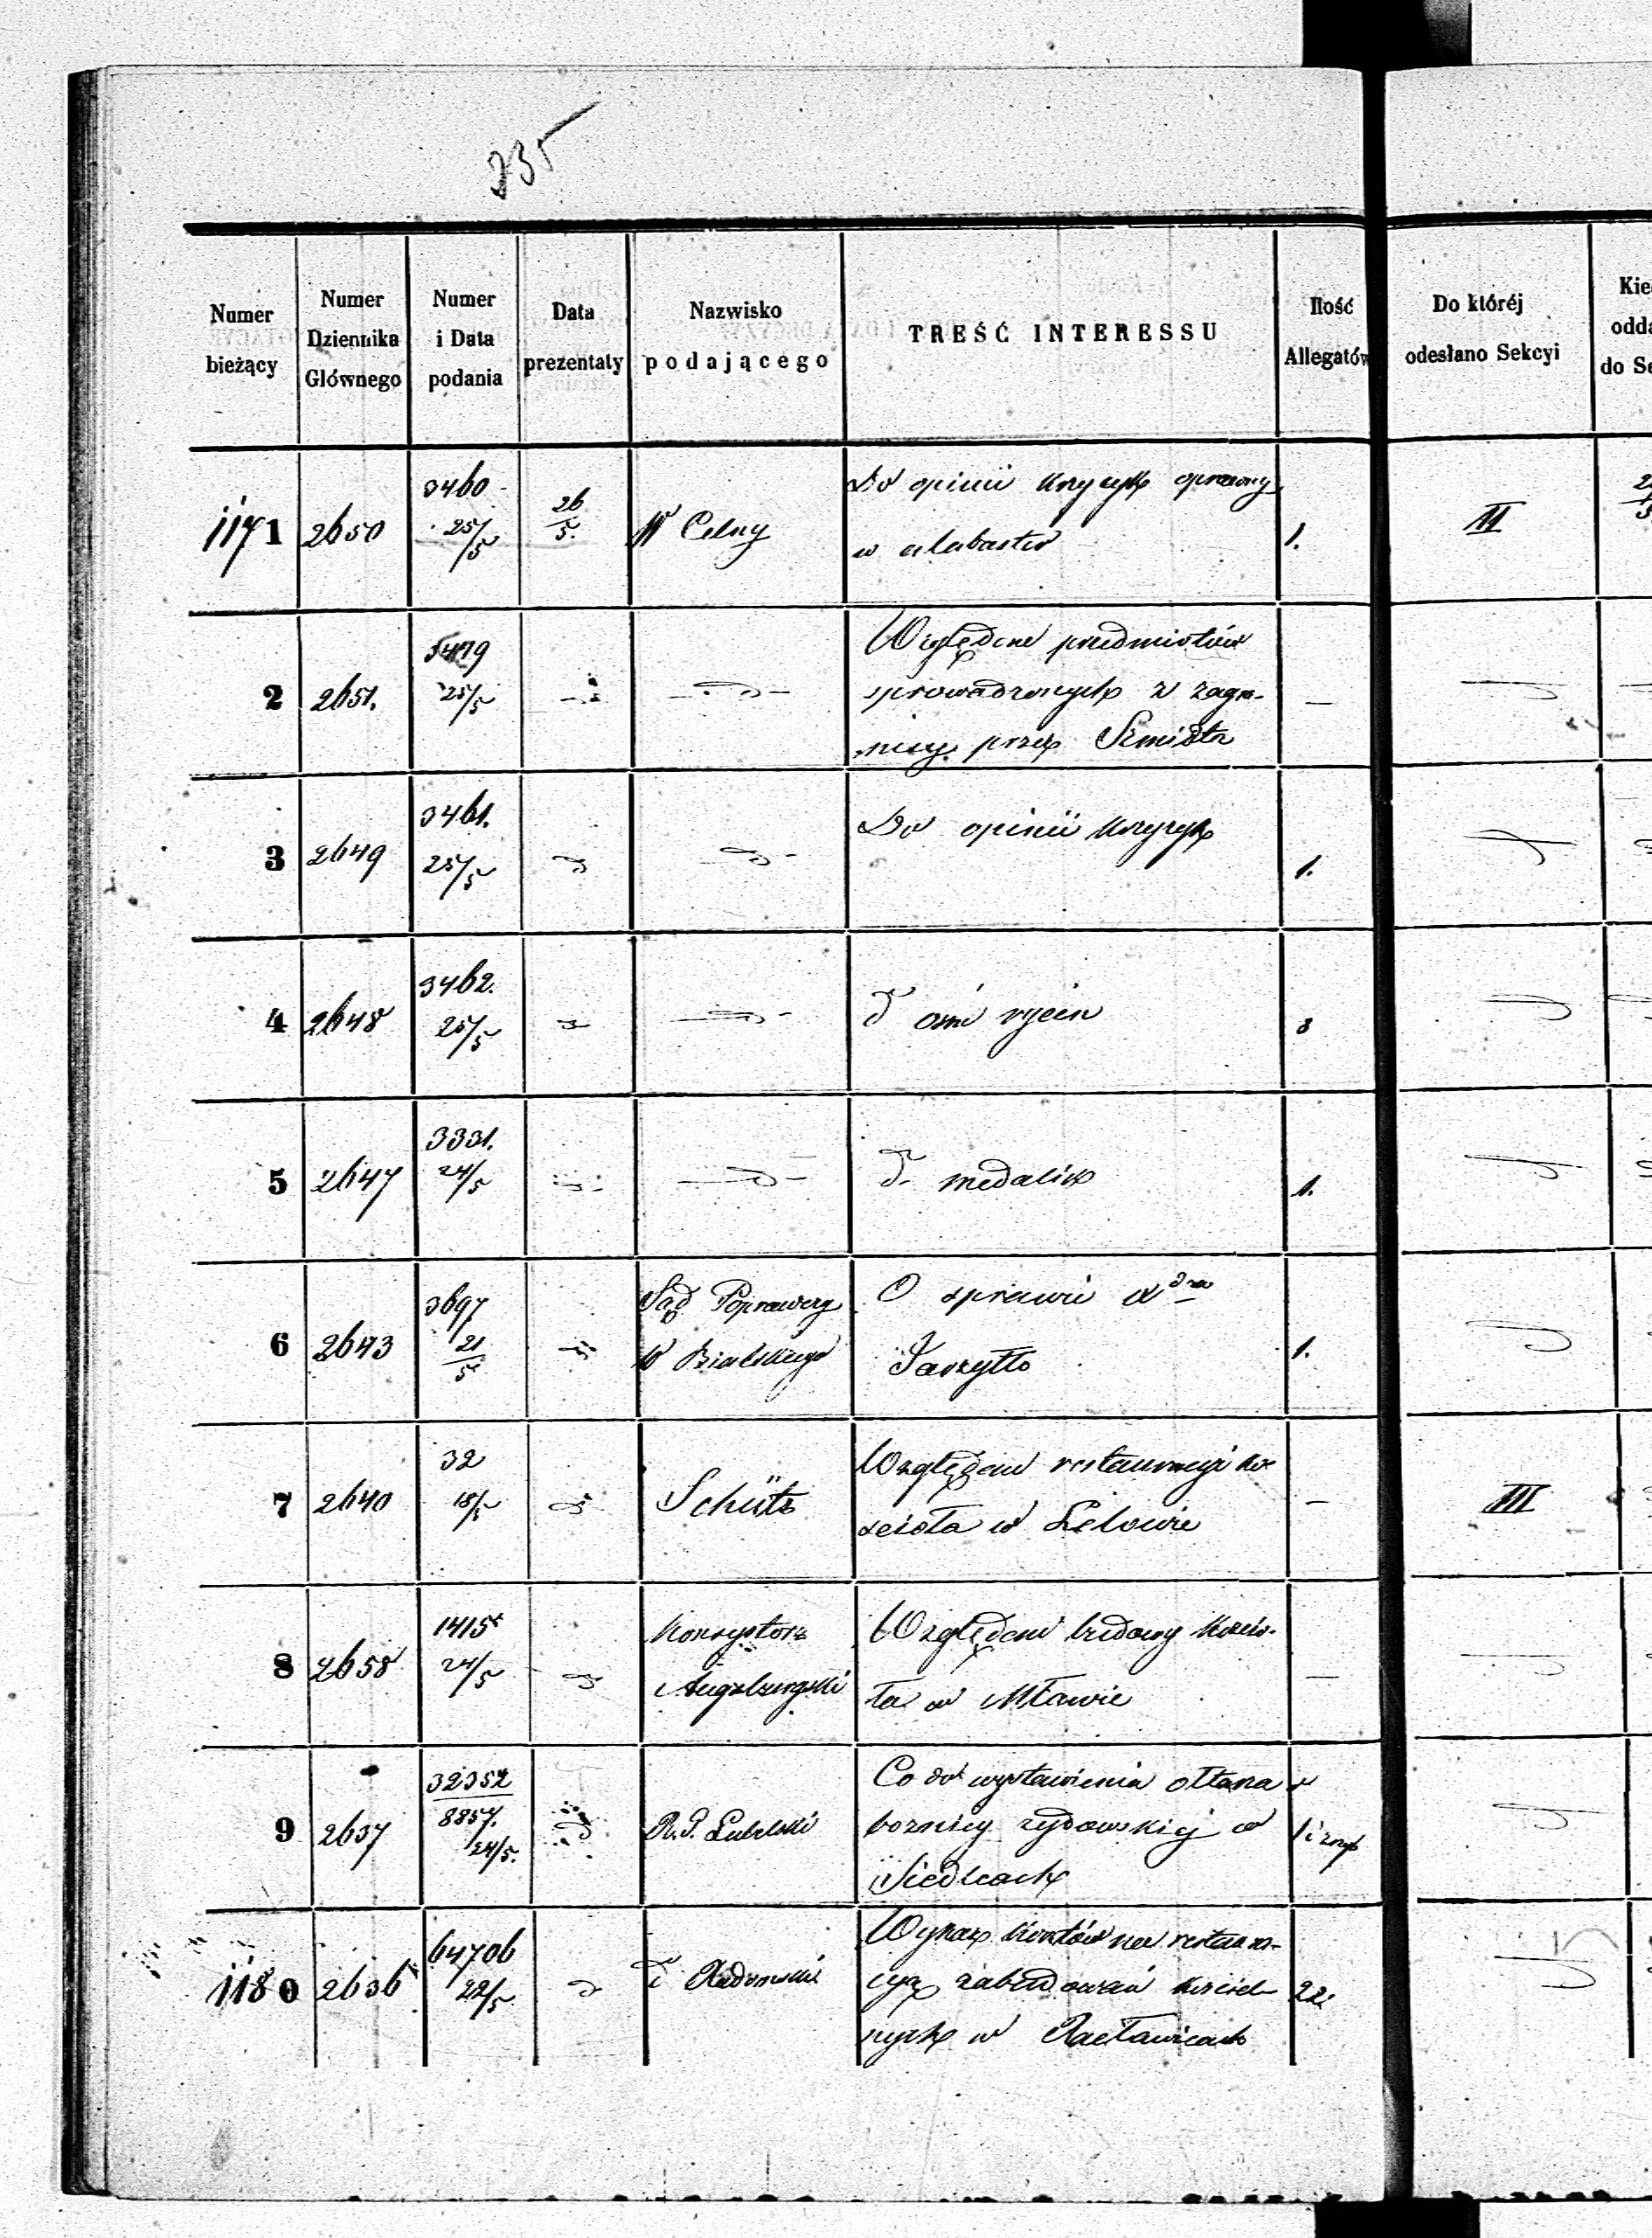 235
Numer bieżący | Numer Dziennika Głównego | Numer i Data podania | Data prezentaty | Nazwisko podającego | TREŚĆ INTERESSU | Ilość Allegatów | Do któréj odesłano Sekcyi
1171 | 2650 | 3460 25/5 | 26/5 | W Celny | Do opinii krzyżyk oprawny
w alabaster | 1. | II
2 | 2651. | 3479 25/5 | d | d | Względem przedmiotów
sprowadzonych z zagra-
nicy przez Szmidta | — | d
3 | 2649 | 3461. 25/5 | d | d | Do opinii krzyżyk | 1. | d
4 | 2648 | 3462. 25/5 | d | d | d ośm rycin | 8 | d
5 | 2647 | 3331. 24/5 | d | d | d medalik | 1. | d
6 | 2643 | 3697 21/5 | d | Sąd Poprawczy
W Bialskiego | O sprawie
Jaszytło | 1. | d
7 | 2640 | 32 18/5 | d | Schütz | Względem restauracyi ko
ścioła w Zelowie | — | III
8 | 2658 | 1415 24/5 | d | Konsystorz
Augsburgski | Względem budowy kościo-
ła w Mławie | — | d
9 | 2637 | 32352 8857. 24/5. | d | R. G. Lubelski | Co do wystawienia ołtarza w
bożnicy żydowskiej w
Siedlcach | 1 i | d
1180 | 2636 | 64706 22/5 | d | d Radomski | Wykaz kosztów na restaura-
cyą zabudowań kościel-
nych w Racławicach | 22. | d